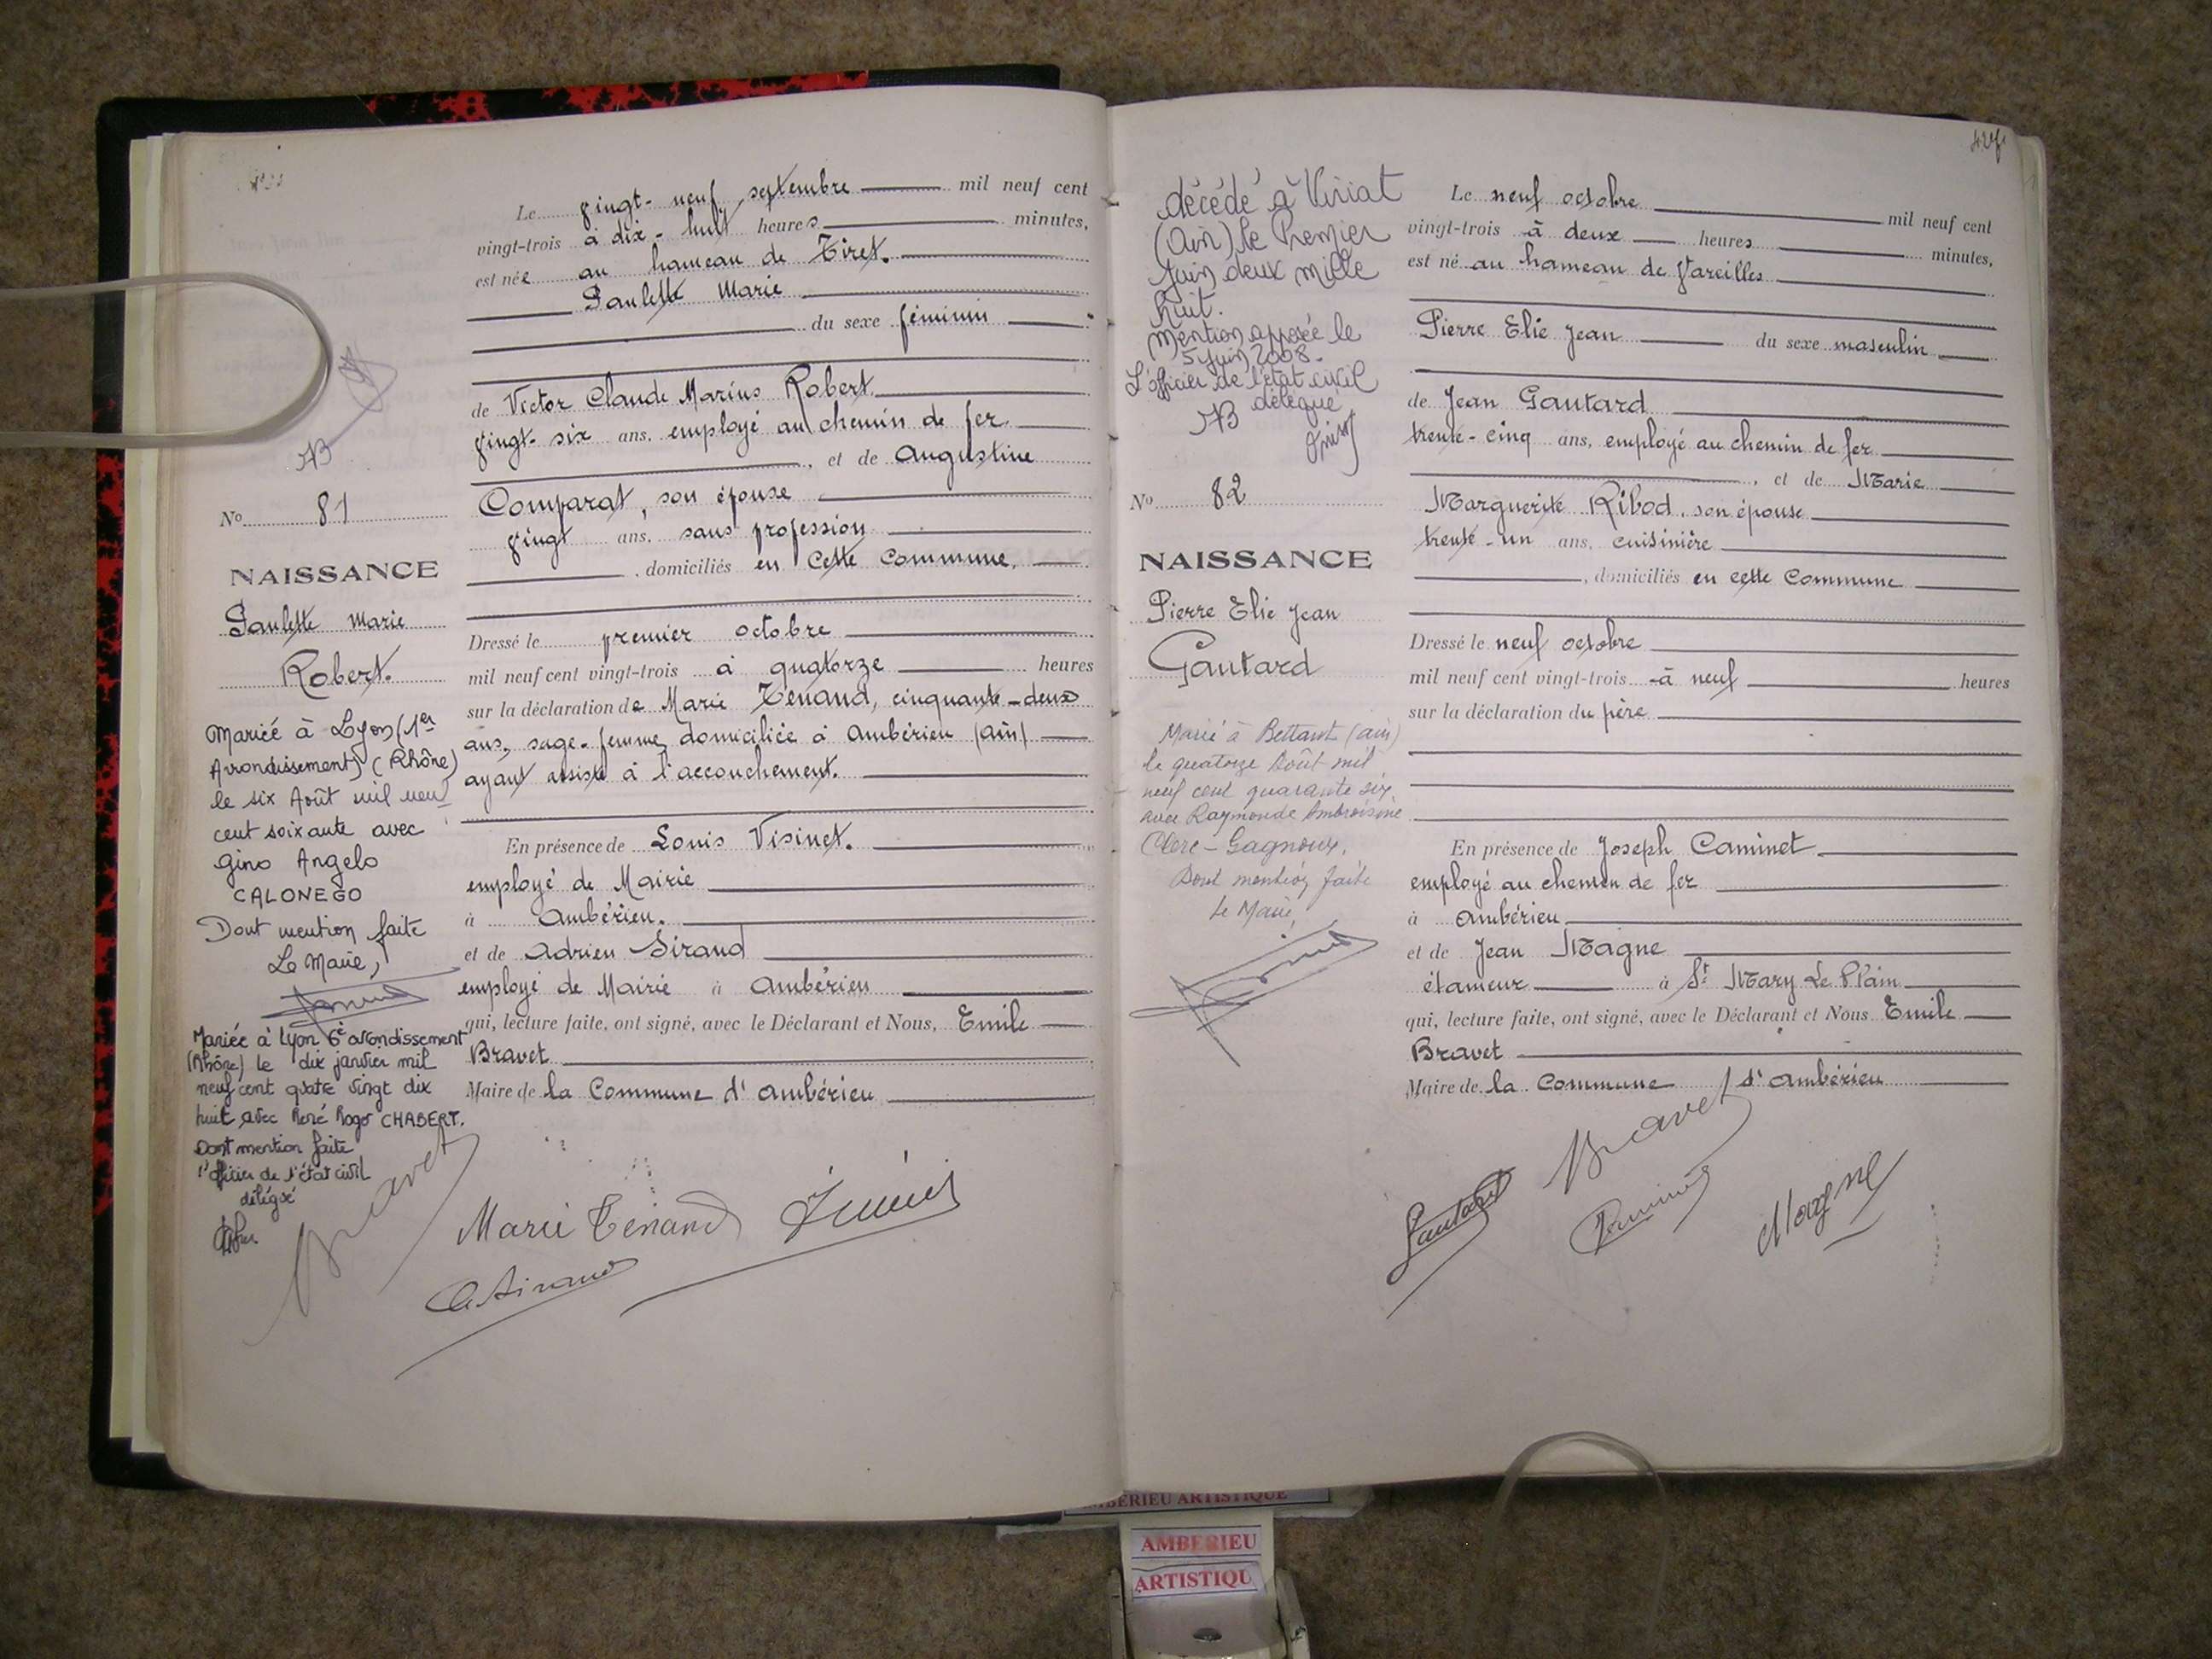 Le vingt-neuf septembre mil neuf cent
vingt-trois à dix-huit heures minutes,
est née au hameau de Tiret.
Paulette Marie
du sexe féminin
de Victor Claude Marius Robert
vingt-six ans, employé au chemin de fer
, et de Augustine
Comparat, son épouse
vingt ans, sans profession
, domiciliés en cette Commune.
Dressé le premier octobre
mil neuf cent vingt-trois à quatorze heures
sur la déclaration de Marie Tenand, cinquante-deux
ans, sage-femme, domiciliée à Ambérieu (Ain)
ayant assisté à l'accouchement.
En présence de Louis Visinet.
employé de Mairie
à Ambérieu.
et de Adrien Sirand
employé de Mairie à Ambérieu
qui, lecture faite, ont signé, avec le Déclarant et Nous, Emile
Bravet
Maire de la Commune d'Ambérieu
Bravet
Marie Tenand
A Sirand
No 81
NAISSANCE
Paulette Marie
Robert.
Mariée à Lyon (1er
Arrondissement) (Rhône)
le six Août mil neuf
cent soixante avec
Gino Angelo
CALONEGO
Dont mention faite
Le Maire,
Mariée à Lyon 6è arrondissement
(Rhône) le dix janvier mil
neuf cent quatre vingt dix
huit avec René Roger CHABERT.
Dont mention faite
l'officier de l'état civil
délégué
décédé à Viriat
(Ain) le Premier
Juin deux mille
huit.
Mention apposée le
5 juin 2008.
L'officier de l'état civil
délégué
No 82
NAISSANCE
Pierre Elie Jean
Gautard
Marié à Bettant (Ain)
le quatorze Août mil
neuf cent quarante six
avec Raymonde Ambroisine
Clerc-Gagnoux.
Dont mention faite
Le Maire,
Le neuf octobre mil neuf cent
vingt-trois à deux heures minutes,
est né au hameau de Vareilles
Pierre Elie Jean du sexe masculin
de Jean Gautard
trente-cinq ans, employé au chemin de fer
, et de Marie
Marguerite Ribod, son épouse
trente-un ans, cuisinière
, domiciliés en cette Commune
Dressé le neuf octobre
mil neuf cent vingt-trois à neuf heures
sur la déclaration du père
En présence de Joseph Caminet
employé au chemin de fer
à Ambérieu
et de Jean Magne
étameur à St Mary Le Plain
qui, lecture faite, ont signé, avec le Déclarant et Nous Emile
Bravet
Maire de la Commune d'Ambérieu
Bravet
Gautard
Caminet
Magne
AMBERIEU ARTISTIQUE
AMBERIEU
ARTISTIQU